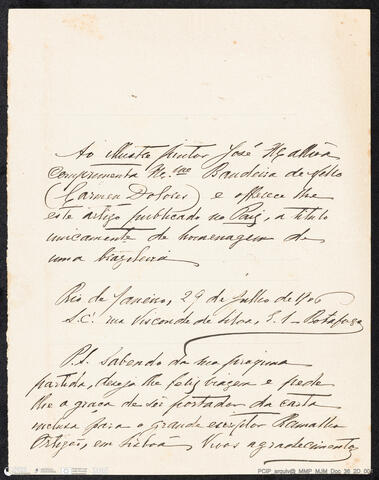 Ao illustre pintor José Malhôa
Comprimenta Mme Bandeira de Mello
(Carmen Dolores) e offerece lhe
este artigo publicado no Paiz, a titulo
unicamente de homenagem de
uma brazileira
Rio de Janeiro, 29 de Julho de 1906
S.C. rua Visconde de Silva, Botafogo
P.S. Sabendo da sua proxima
partida, deseja lhe feliz viagem e pede
lhe a graça de ser portador da carta
inclusa para o grande escriptor Ramalho
Ortigão, em Lisboa. Vivos agradecimentos
PCIP_arquivo_MMP_MJM_Doc 36_2D_00